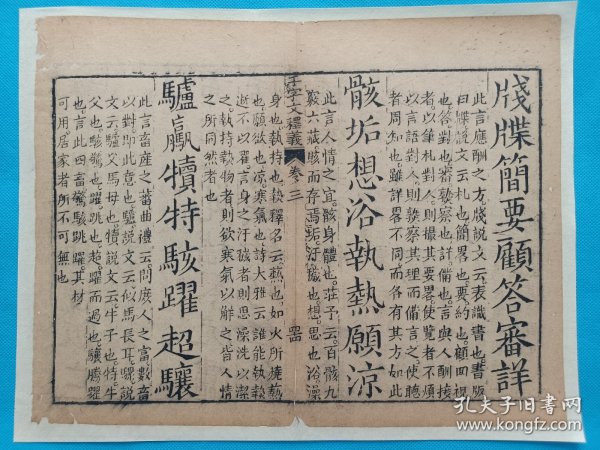 牋牒簡要顧答審詳
此言應酬之方。牋說文云表識書也書版
曰牒說文云札也簡畧也要約也顧回視
也答對也審孰察也詳備也言與人酬接
者以筆札對人則撮其要畧使覽者不煩
以言語對人則孰察其理而備言之使聽
者周知也雖詳畧不同而各有其方如此
骸垢想浴執熱願涼
此言人情之宜骸身體也莊子云百骸九
竅六藏賅而存焉垢汙穢也想思也浴澡
千字文釋義 卷三
身也執持也熱釋名云爇也如火所燒爇
也願欲也涼寒氣也詩大雅云誰能執熱
逝不以濯言身之汙穢者則思澡洗以潔
之執持熱物者則欲寒氣以解之皆人情
之所同然者也
驢驘犢特駭躍超驤
此言畜產之蕃曲禮云問庶人之富數畜
以對即此意也驢說文云似馬長耳驘說
文云驢父馬母也犢說文云牛子也特牛
父也駭驚也躍跳也超躍而過也驤騰躍
也言此四畜驚駭跳躍其材
可用居家者所不可無也
孔夫子旧书网
www.kongfz.com